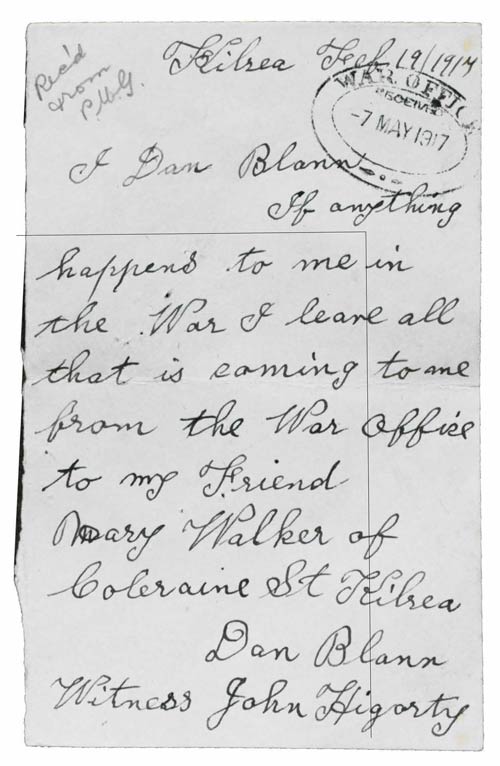 Rec'd
from
P.M.G.
Kilrea Feb 19/1917
WAR OFFICE
RECEIVED
-7 MAY 1917
I Dan Blann
If anything
happens to me in
the War I leave all
that is coming to me
from the War Office
to my Friend
Mary Walker of
Coleraine St Kilrea
Dan Blann
Witness John Higorty